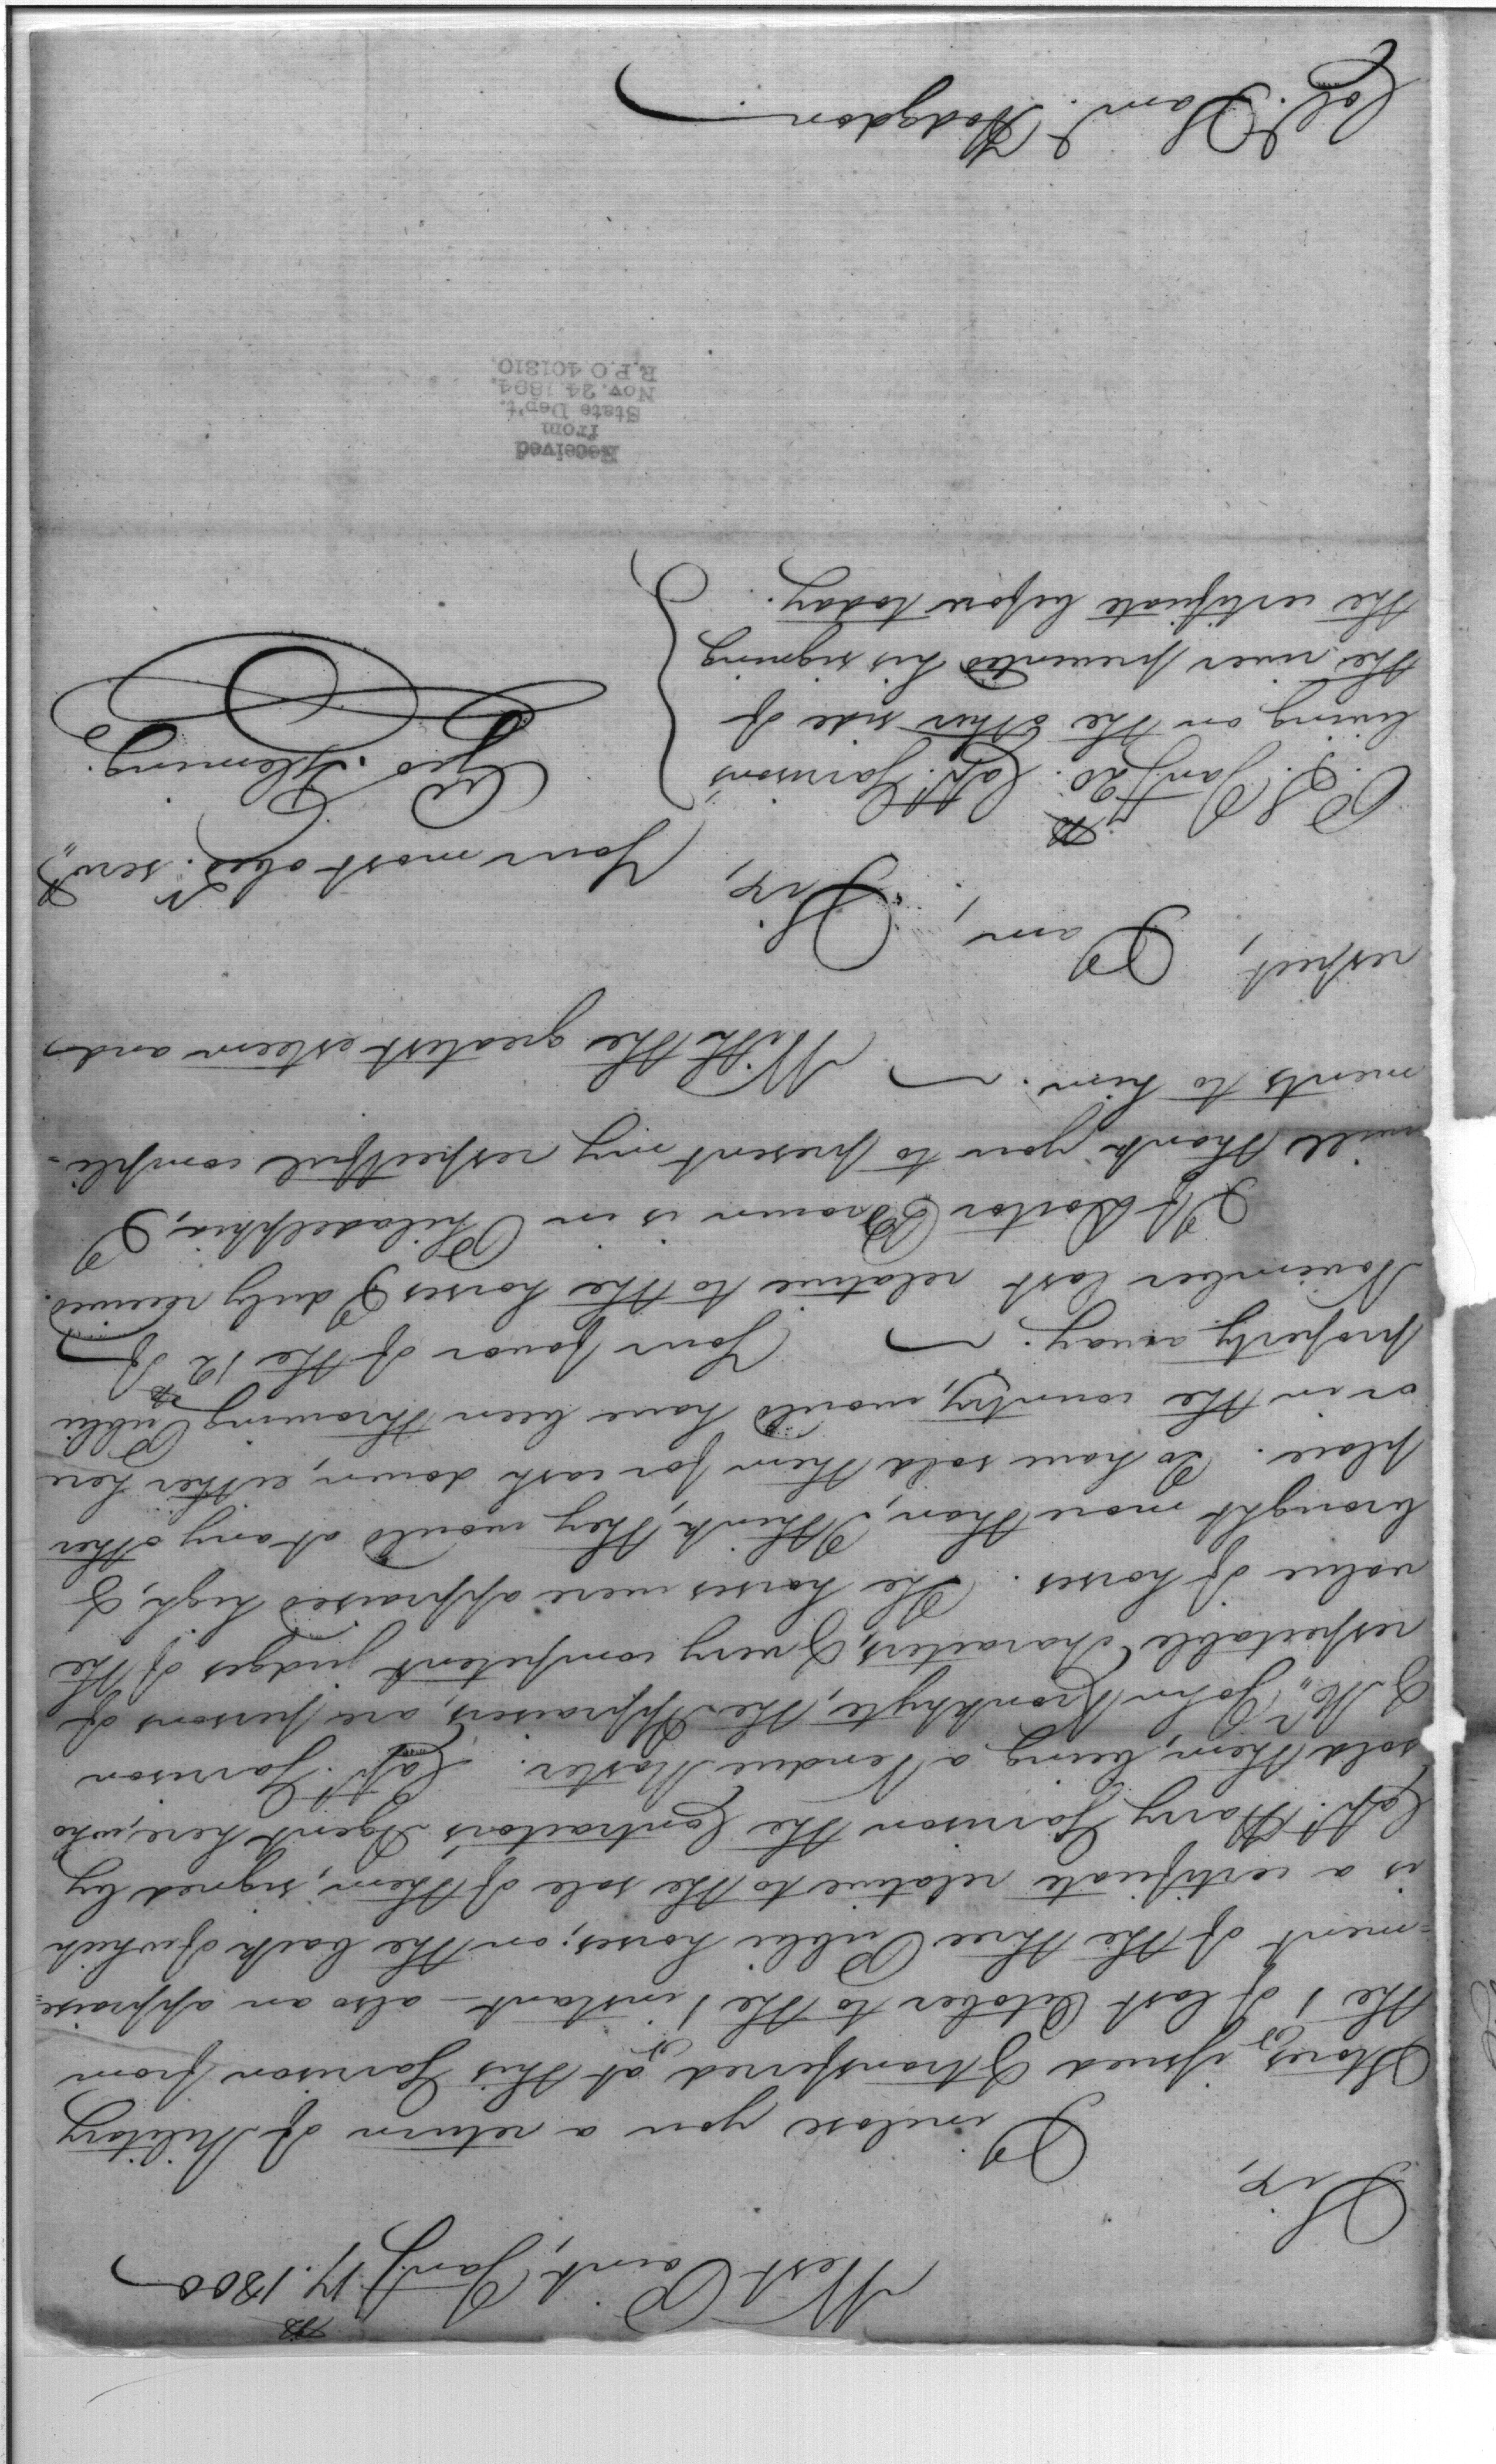 West Point, Jany. 17th. 1800
Sir,
I inclose you a return of Military
Stores, issued & transferred at this Garrison from
the 1st of last October to the 1st instant – also an appraise-
-ment of the three Public horses; on the back of which
is a certificate relative to the sale of them, signed by
Capt. Harry Garrison the Contractor's Agent here, who
sold them, being a Vendue Master. Capt. Garrison
& Mr. John Kronkhyte, the Appraisers, are persons of
respectable characters, & very competent judges of the
value of horses. The horses were appraised high, &
brought more than, I think, they would at any other
place. To have sold them for cash down, either here
or in the country, would have been throwing Public
property away. Your favor of the 12th of
November last relative to the horses I duly received.
If Doctor Brown is in Philadelphia, I
will thank you to present my respectful compli-
ments to him. With the greatest esteem and
respect, I am, Sir,
Your most obed. servt.
Geo. Fleming.
P.S. Jany. 20th. Capt. Garrison's
living on the other side of
the river prevented his signing
the certificate before today.
Received
from
State Dep't.
Nov. 24. 1894.
R.P.O 401310.
Col. Saml. Hodgdon